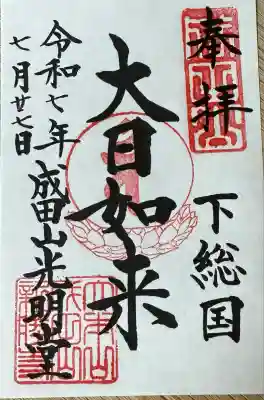 奉拝
下総国
大日如来
成田山光明堂
令和七年
七月廿七日